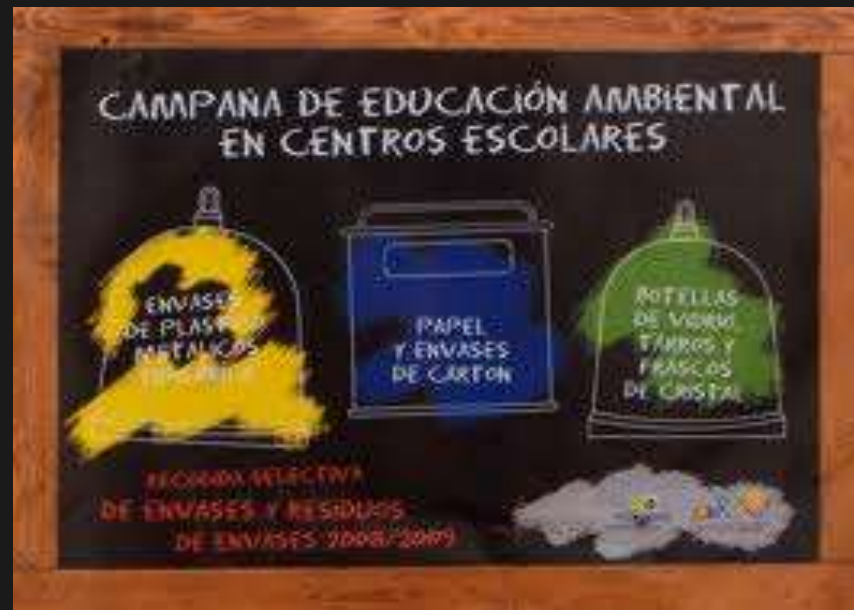 CAMPAÑA DE EDUCACIÓN AMBIENTAL
EN CENTROS ESCOLARES
ENVASES
DE PLASTICO
METALICOS
PAPEL
Y ENVASES
DE CARTON
BOTELLAS
DE VIDRIO,
TARROS Y
FRASCOS
DE CRISTAL
RECOGIDA SELECTIVA
DE ENVASES Y RESIDUOS
DE ENVASES 2008/2009